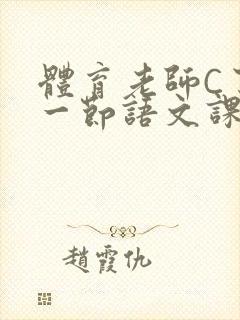 體育老師C了
一節語文課
趙霞仇